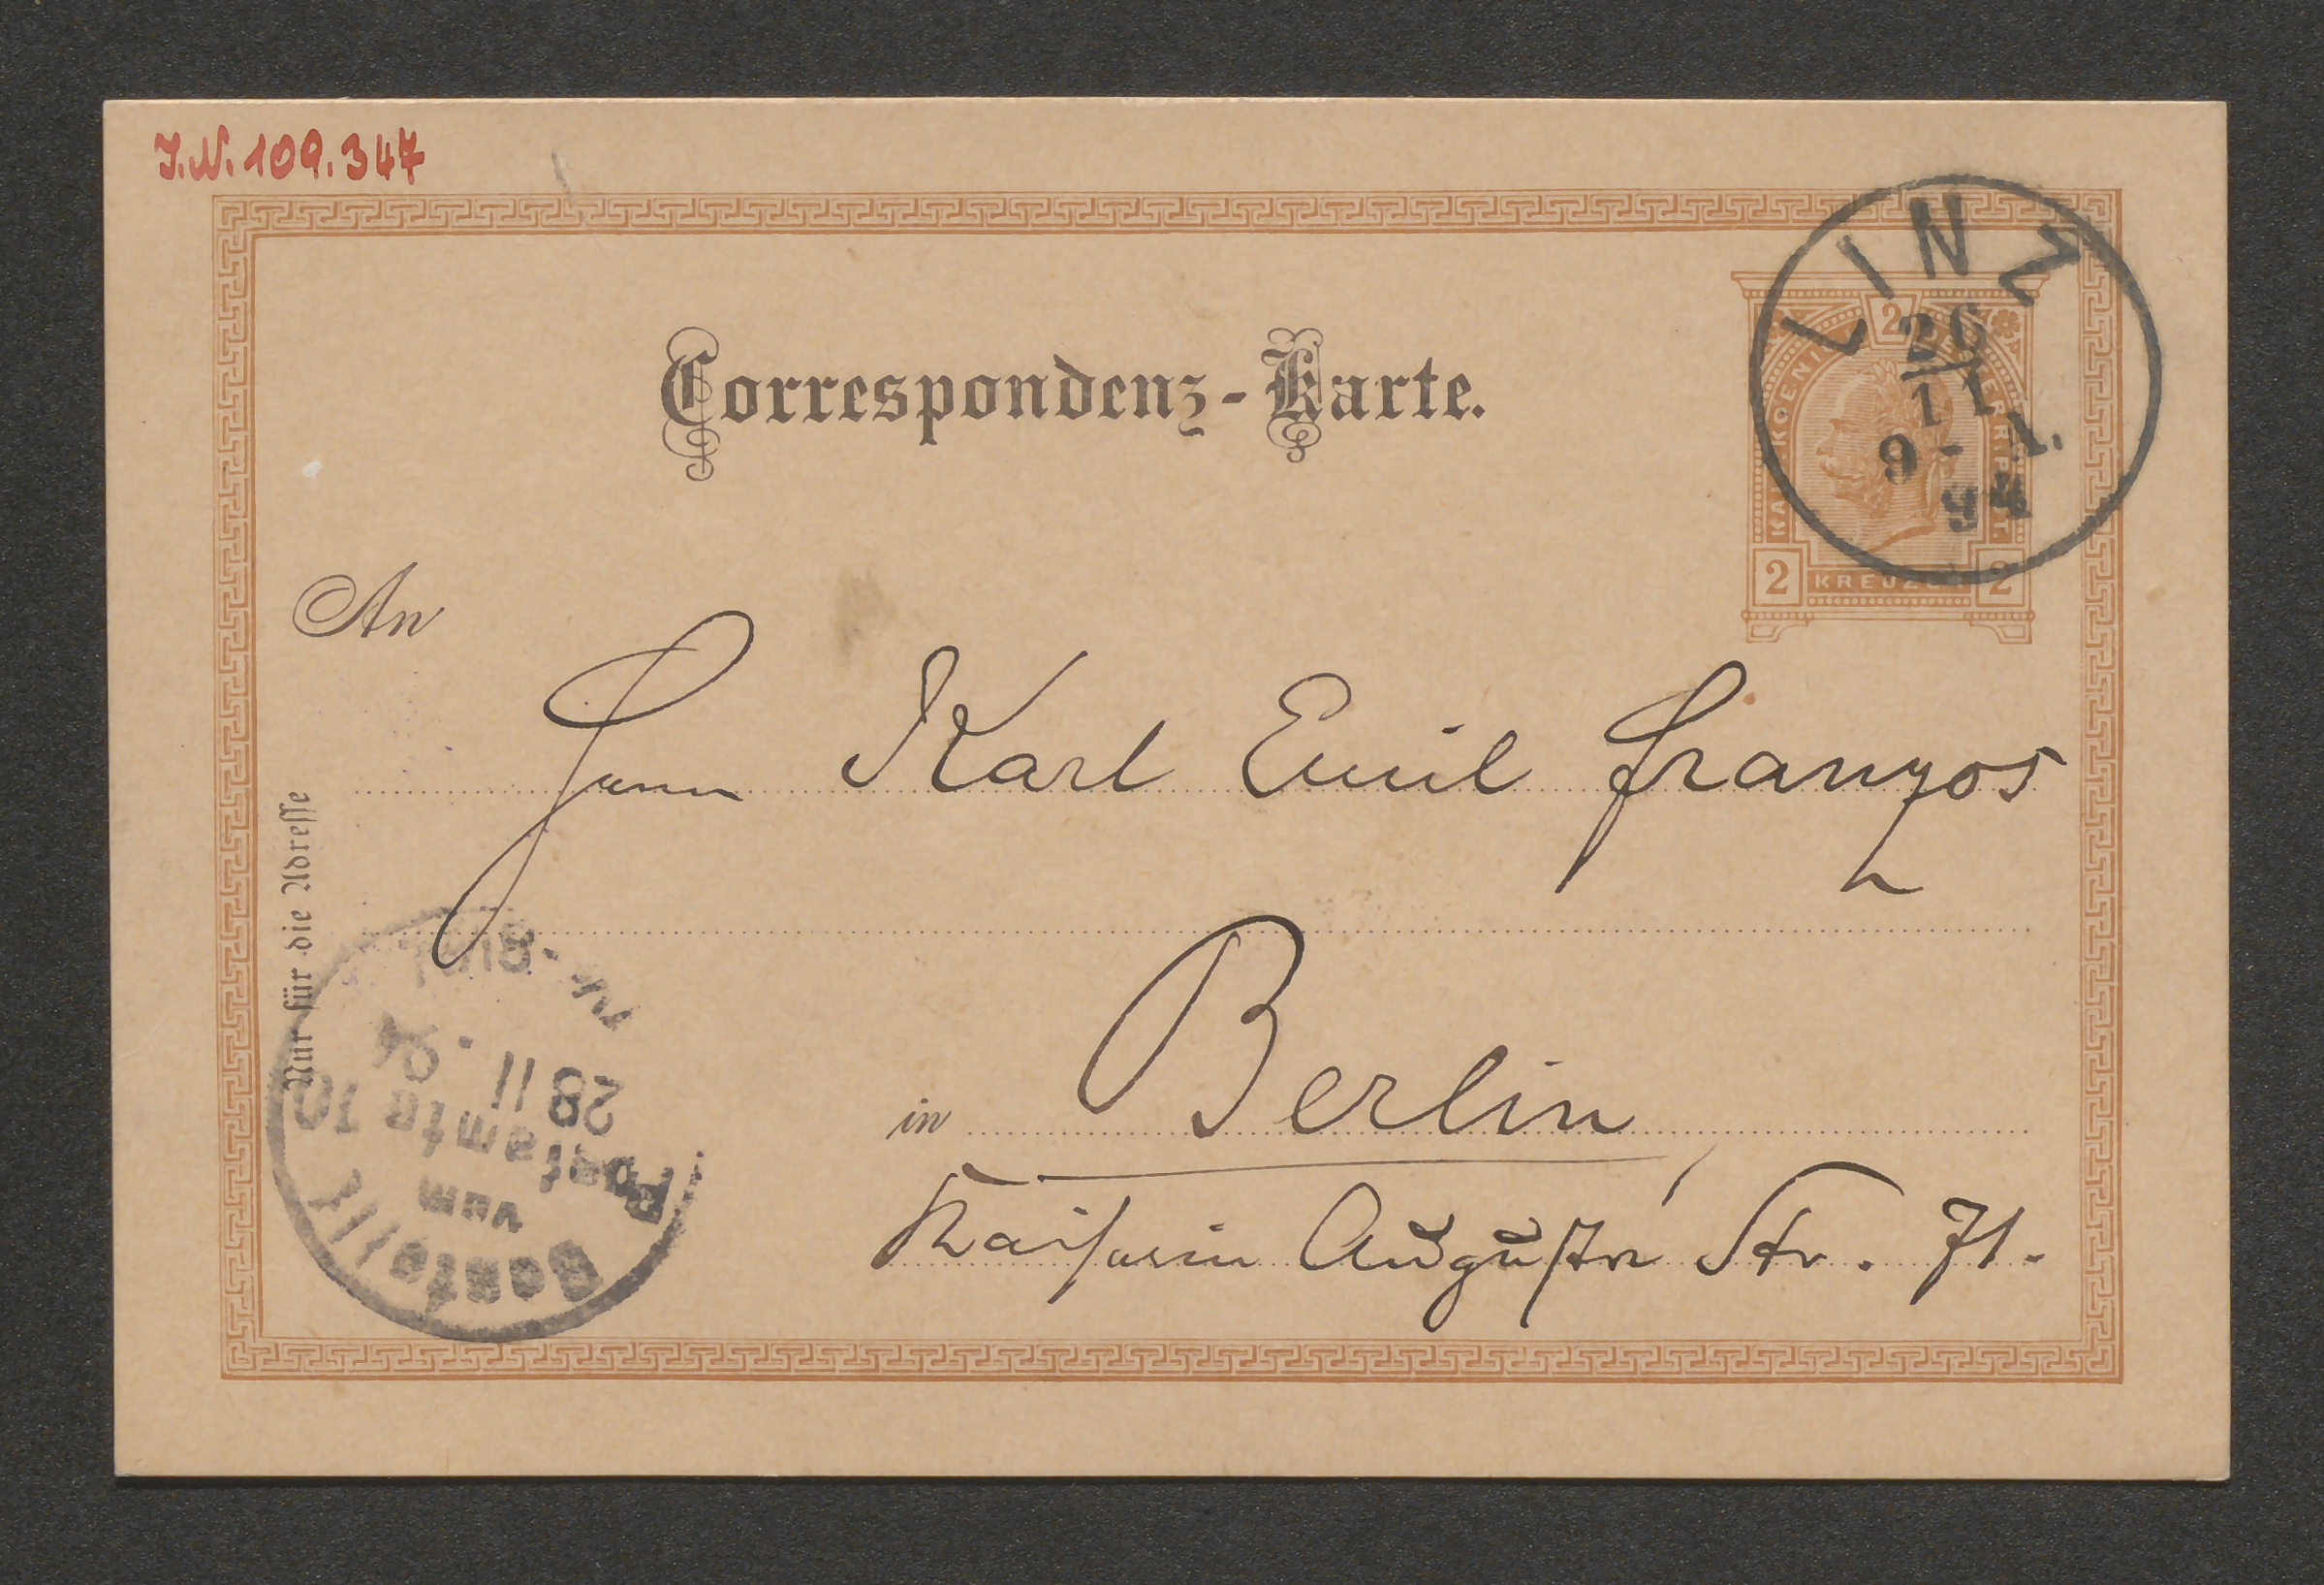 J.N. 109.347
Correspondenz-Karte.
LINZ
26
11
9 - A.
94
2
KREUZER
2 2
An
Herrn Karl Emil Franzos
in Berlin,
Kaiserin Augusta Str. 71.
Nur für die Adresse
Bestellt
vom
Postamte 10
28 11 . 94